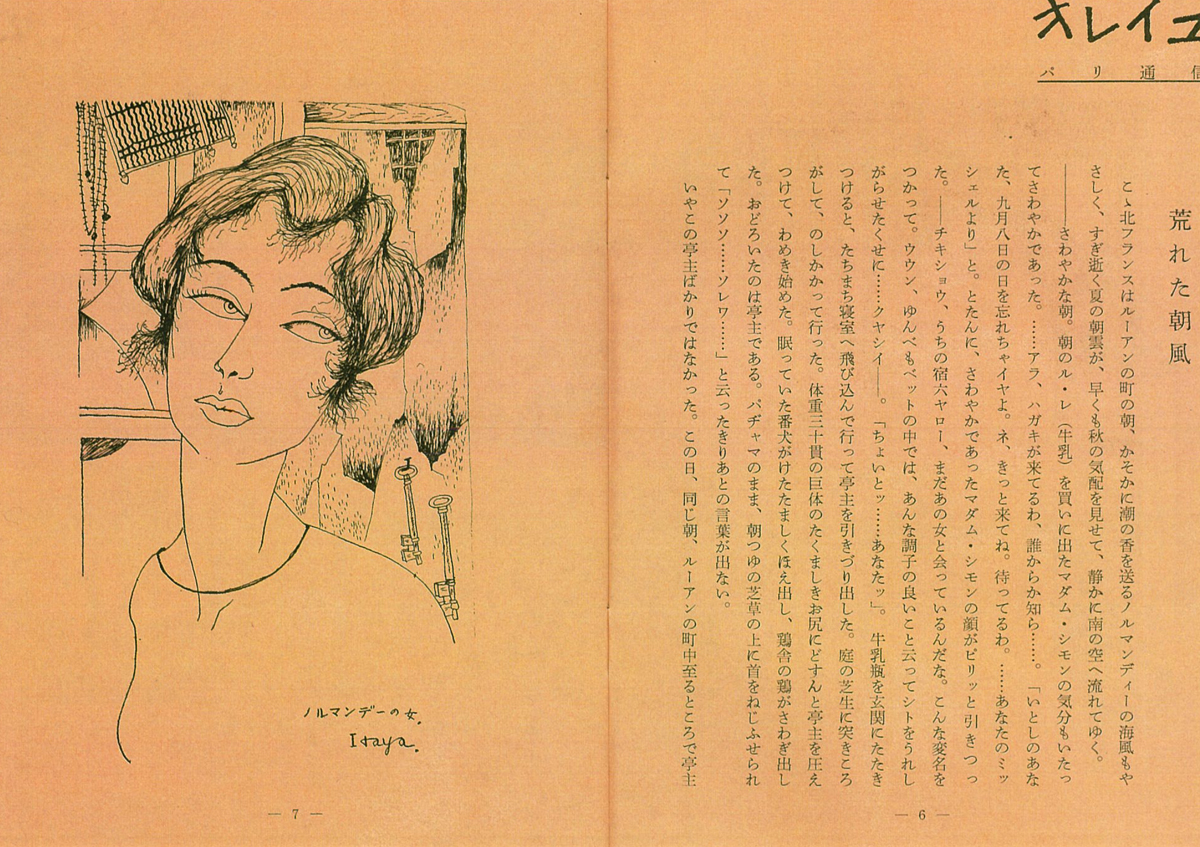 オレイユ
パリ通信
荒れた朝風
こゝ北フランスはルーアンの町の朝、かそかに潮の香を送るノルマンディーの海風もや
さしく、すぎ逝く夏の朝雲が、早くも秋の気配を見せて、静かに南の空へ流れてゆく。
――さわやかな朝。朝のル・レ（牛乳）を買いに出たマダム・シモンの気分もいたっ
てさわやかであった。……アラ、ハガキが来てるわ、誰からか知ら……。「いとしのあな
た、九月八日の日を忘れちゃイヤよ。ネ、きっと来てね。待ってるわ。……あなたのミッ
シェルより」と。とたんに、さわやかであったマダム・シモンの顔がピリッと引きつっ
た。――チキショウ、うちの宿六ヤロー、まだあの女と会っているんだな。こんな変名を
つかって。ウウン、ゆんべもベットの中では、あんな調子の良いこと云ってシトをうれし
がらせたくせに……クヤシイ――。「ちょいとッ……あなたッ」。牛乳瓶を玄関にたたき
つけると、たちまち寝室へ飛び込んで行って亭主を引きづり出した。庭の芝生に突きころ
がして、のしかかって行った。体重三十貫の巨体のたくましきお尻にどすんと亭主を圧え
つけて、わめき始めた。眠っていた番犬がけたたましくほえ出し、鶏舎の鶏がさわぎ出し
た。おどろいたのは亭主である。パヂャマのまま、朝つゆの芝草の上に首をねじふせられ
て「ソソソ……ソレワ……」と云ったきりあとの言葉が出ない。
いやこの亭主ばかりではなかった。この日、同じ朝、ルーアンの町中至るところで亭主
― 6 ―
ノルマンデーの女.
Itaya.
― 7 ―